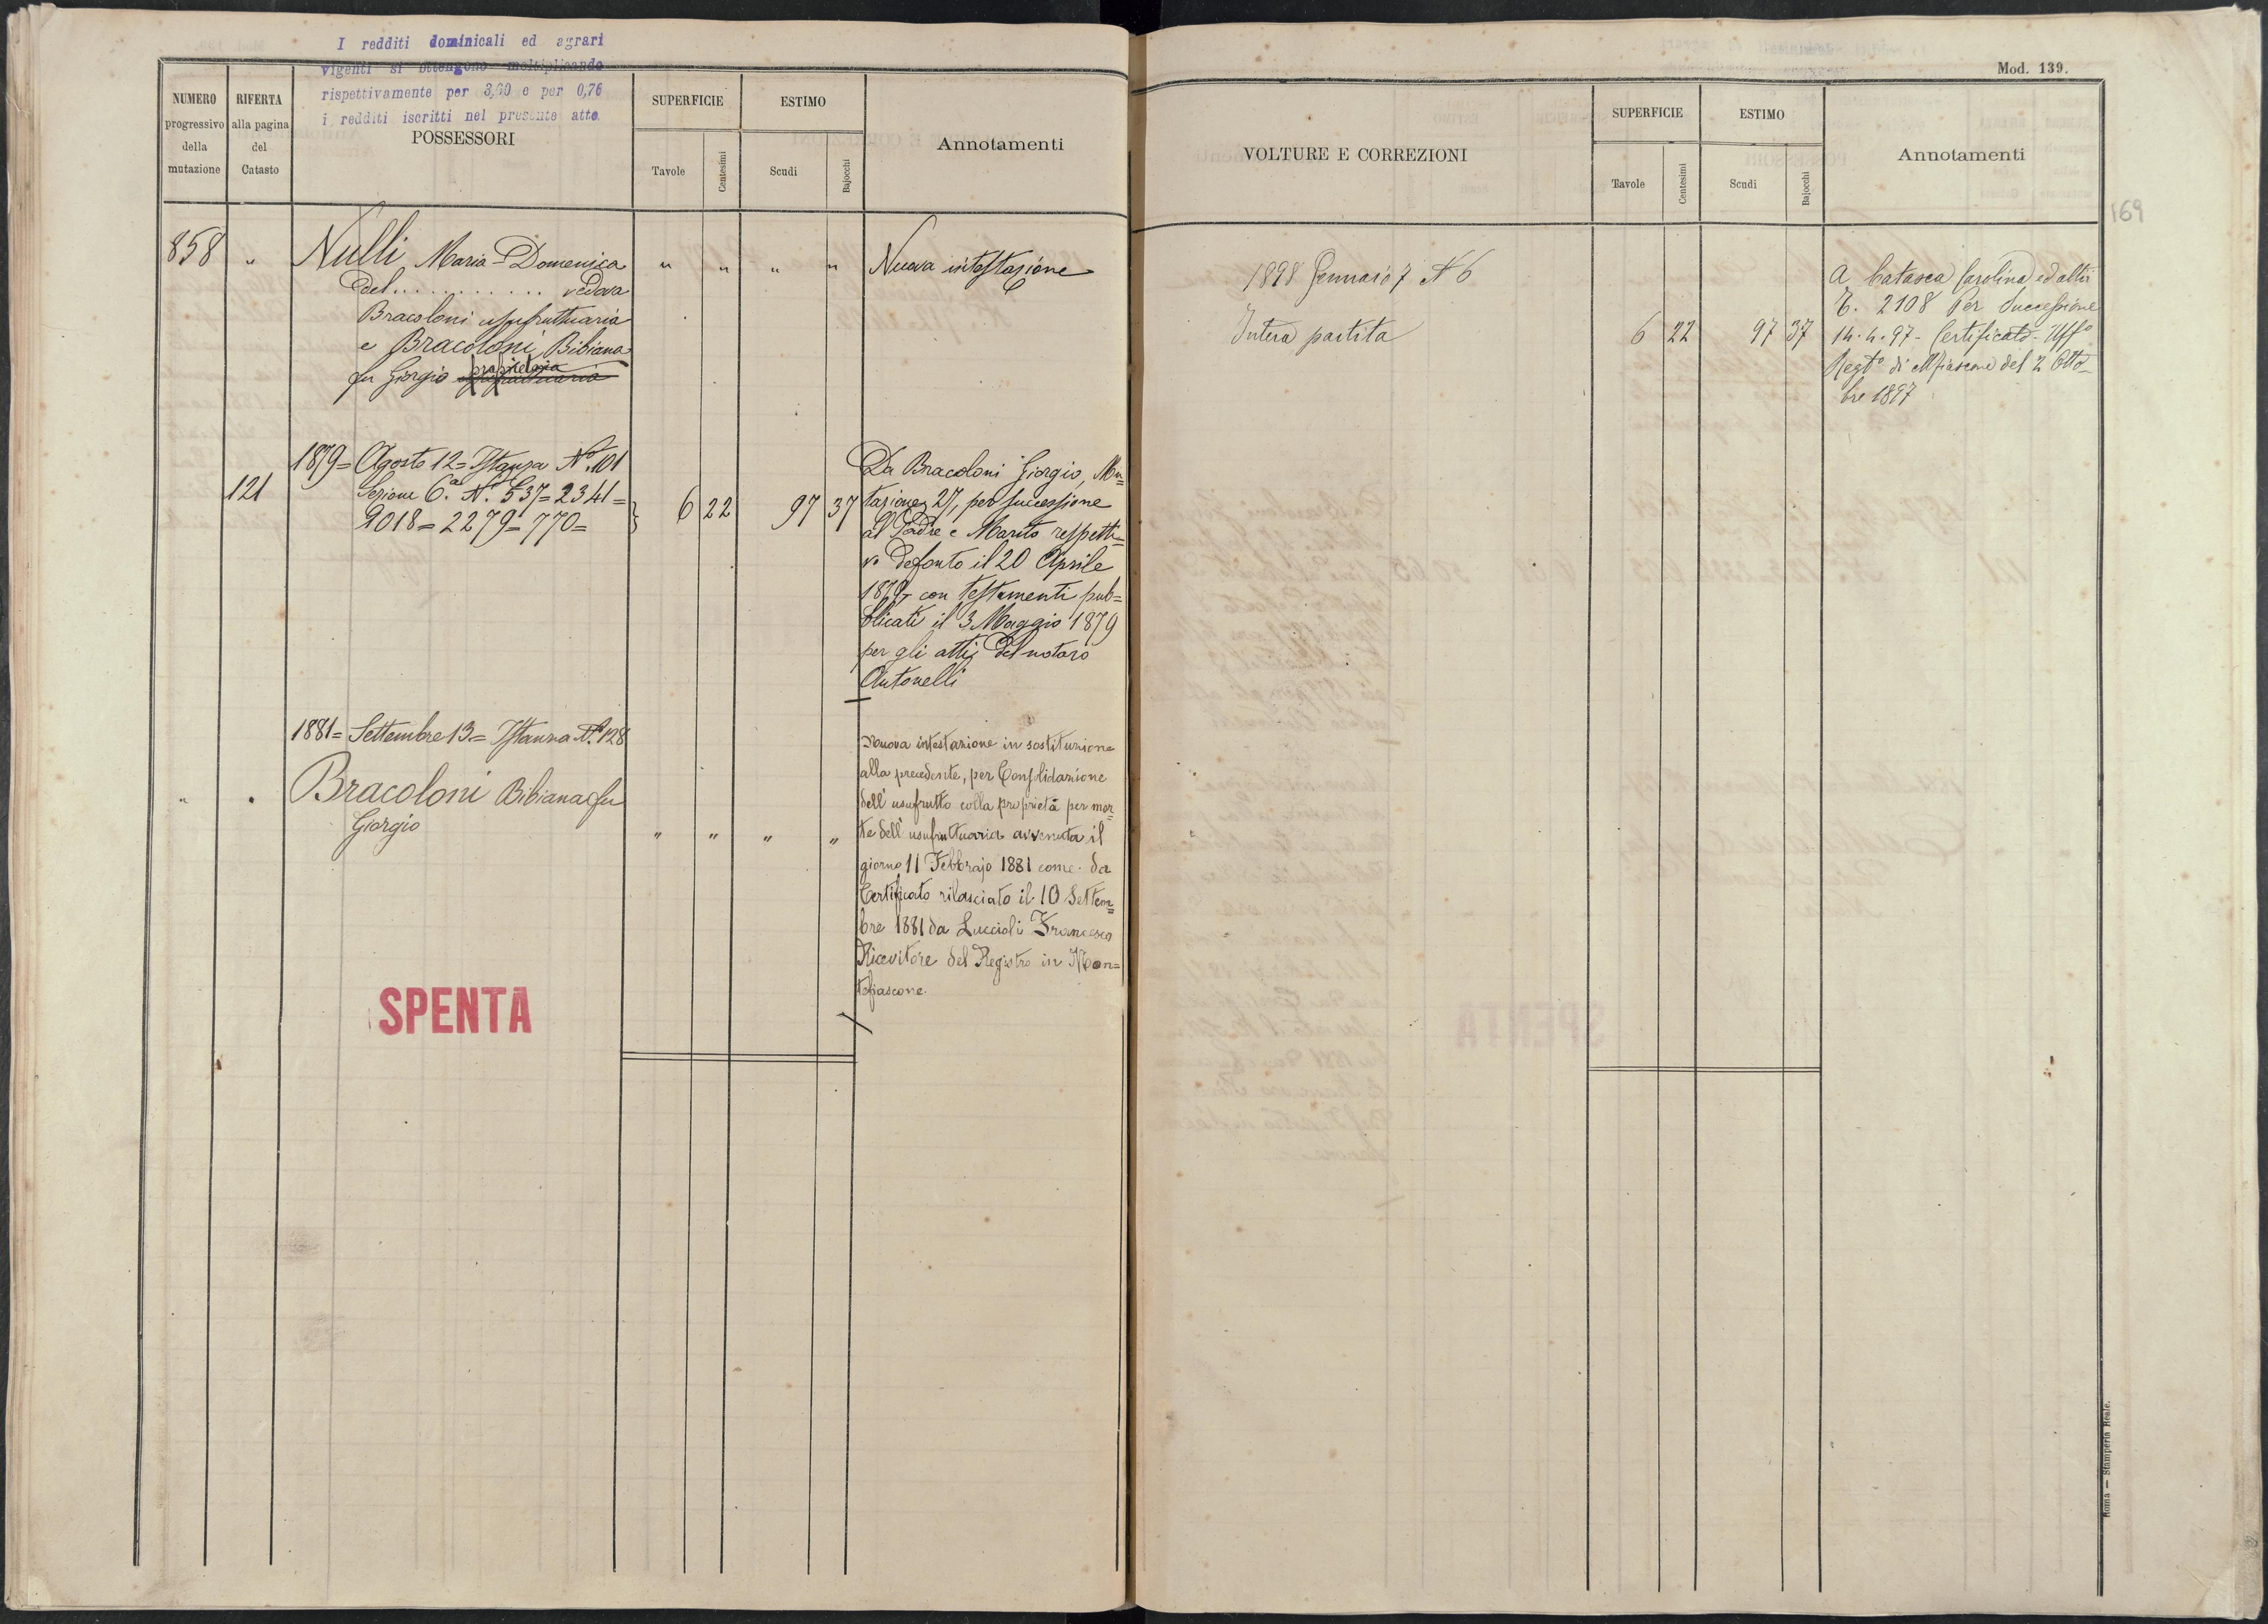 I redditi dominicali ed agrari
vigenti si ottengono moltiplicando
rispettivamente per 3,60 e per 0,76
i redditi iscritti nel presente atto
NUMERO
progressivo
della
mutazione
RIFERTA
alla pagina
del
Catasto
POSSESSORI
SUPERFICIE
Tavole
Centesimi
ESTIMO
Scudi
Bajocchi
Annotamenti
858 " Nulli Maria-Domenica " " " " Nuova intestazione
del . . . . . . . . . . . vedova
Bracoloni usufruttuaria
e Bracoloni Bibiana
proprietaria
fu Giorgio usufruttuaria
1879= Agosto 12= Istanza N.º 101
121 Sezione 6.ª N.º 537= 2341=
2018= 2279= 770=
6 22 97 37
Da Bracoloni Giorgio, Mu=
tazione 27, per successione
al Padre e Marito respetti=
vo defonto il 20 Aprile
1879 con testamenti pub=
blicati il 3 Maggio 1879
per gli atti del notaro
Antonelli
1881= Settembre 13= Istanza N.º 128
" " Bracoloni Bibiana fu
Giorgio
" " " "
Nuova intestazione in sostituzione
alla precedente, per Consolidazione
dell'usufrutto colla proprietà per mor=
te dell'usufruttuaria avvenuta il
giorno 11 Febbrajo 1881 come da
Certificato rilasciato il 10 Settem=
bre 1881 da Luccioli Francesco
Ricevitore del Registro in Mon=
tefiascone.
SPENTA
Mod. 139.
VOLTURE E CORREZIONI
SUPERFICIE
Tavole
Centesimi
ESTIMO
Scudi
Bajocchi
Annotamenti
169
1898 Gennaio 7 N 6
Intera partita
6 22 97 37
A Catasca Carolina ed altri
2108 Per Successione
14.4.97 - Certificato Uffº
Regtº di Mfiascone del 2 Otto
bre 1897
Roma — Stamperia Reale.